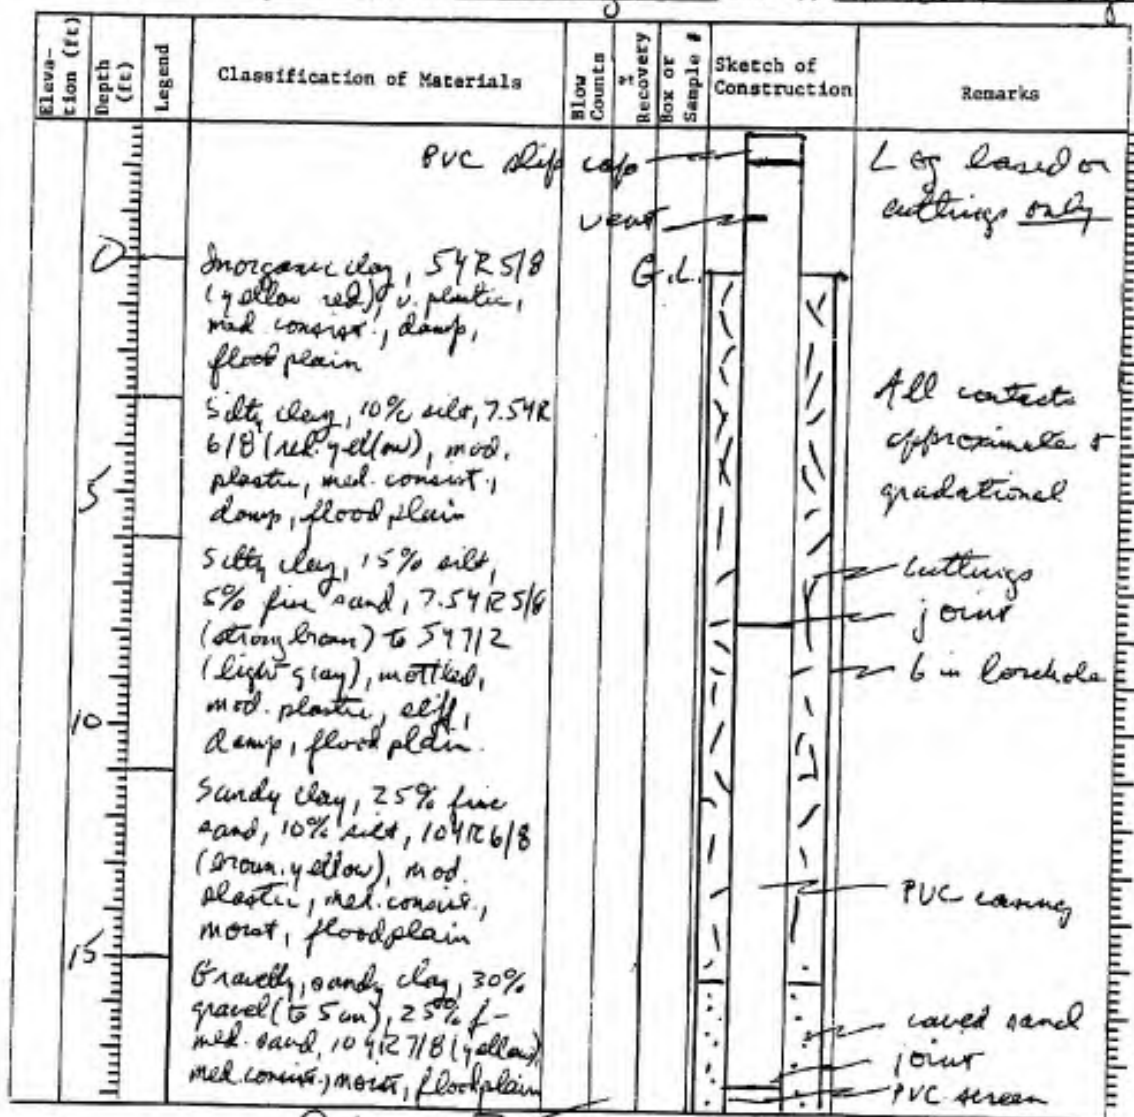 Eleva-
tion (ft)
Depth
(ft)
Legend
Classification of Materials
Blow
Counts
%
Recovery
Box or
Sample #
Sketch of
Construction
Remarks
PVC slip cap
Log based on
cuttings only
vent
0
G.L.
Inorganic clay, 5YR 5/8
(yellow red), v. plastic,
med. consist., damp,
flood plain
Silty clay, 10% silt, 7.5YR
6/8 (red. yellow), mod.
plastic, med. consist.,
damp, flood plain
All contacts
approximate &
gradational
5
Silty clay, 15% silt,
5% fine sand, 7.5YR 5/8
(strong brown) to 5Y7/2
(light gray), mottled,
mod. plastic, stiff,
damp, flood plain.
cuttings
joint
6 in borehole
10
Sandy clay, 25% fine
sand, 10% silt, 10YR 6/8
(brown. yellow), mod.
plastic, med. consist.,
moist, floodplain
PVC casing
15
Gravelly, sandy clay, 30%
gravel (to 5 cm), 25% f-
med. sand, 10YR 7/8 (yellow),
med. consist., moist, floodplain
caved sand
joint
PVC screen